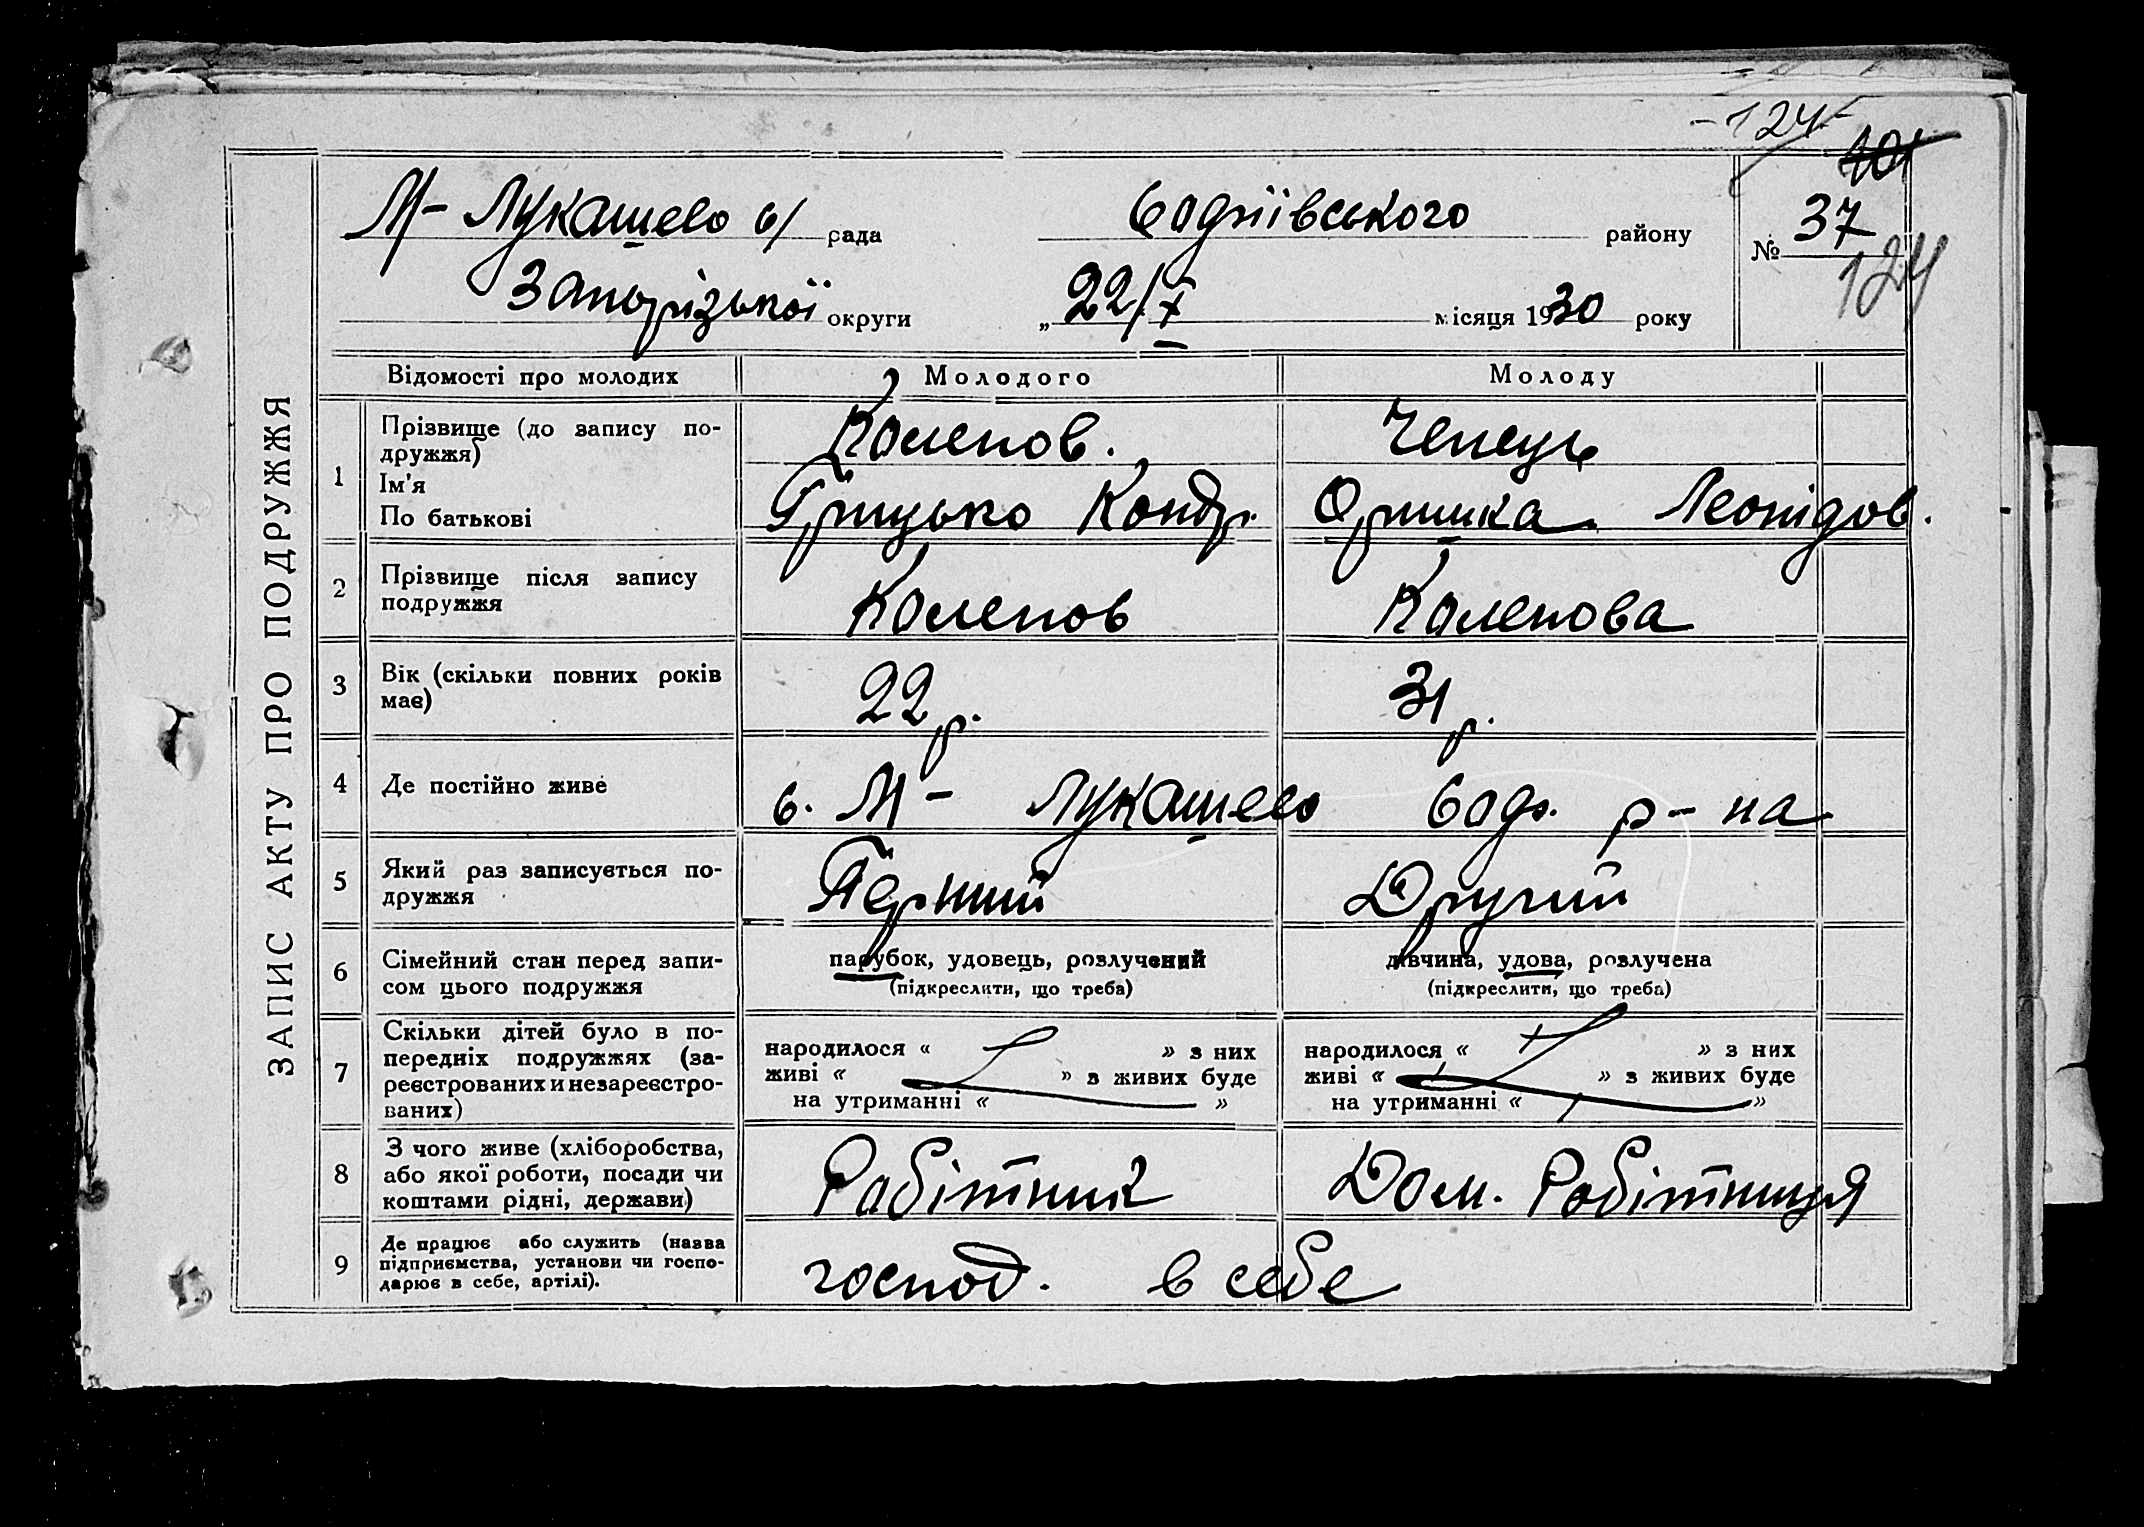 -124-
М- Лукашево с/ рада Софіївського району
№ 37
124
Запорізької округи „ 22/X місяця 1930 року
ЗАПИС АКТУ ПРО ПОДРУЖЖЯ
Відомості про молодих Молодого Молоду
1 Прізвище (до запису по-
дружжя) Каленов. Чепець
Ім'я
По батькові Грицько Кондр. Оришка Леонідов.
2 Прізвище після запису
подружжя Каленов Каленова
3 Вік (скільки повних років
має) 22 р. 31 р.
4 Де постійно живе с. М- Лукашево Соф. р-на
5 Який раз записується по-
дружжя Перший Другий
6 Сімейний стан перед запи-
сом цього подружжя парубок, удовець, розлучений дівчина, удова, розлучена
(підкреслити, що треба) (підкреслити, що треба)
7 Скільки дітей було в по-
передніх подружжях (за-
реєстрованих и незареєстро-
ваних)
народилося « » з них
живі « » з живих буде
на утриманні « »
народилося « » з них
живі « » з живих буде
на утриманні « »
8 З чого живе (хліборобства,
або якої роботи, посади чи
коштами рідні, держави) Робітник Дом. Робітниця
9 Де працює або служить (назва
підприємства, установи чи госпо-
дарює в себе, артілі). господ. в себе